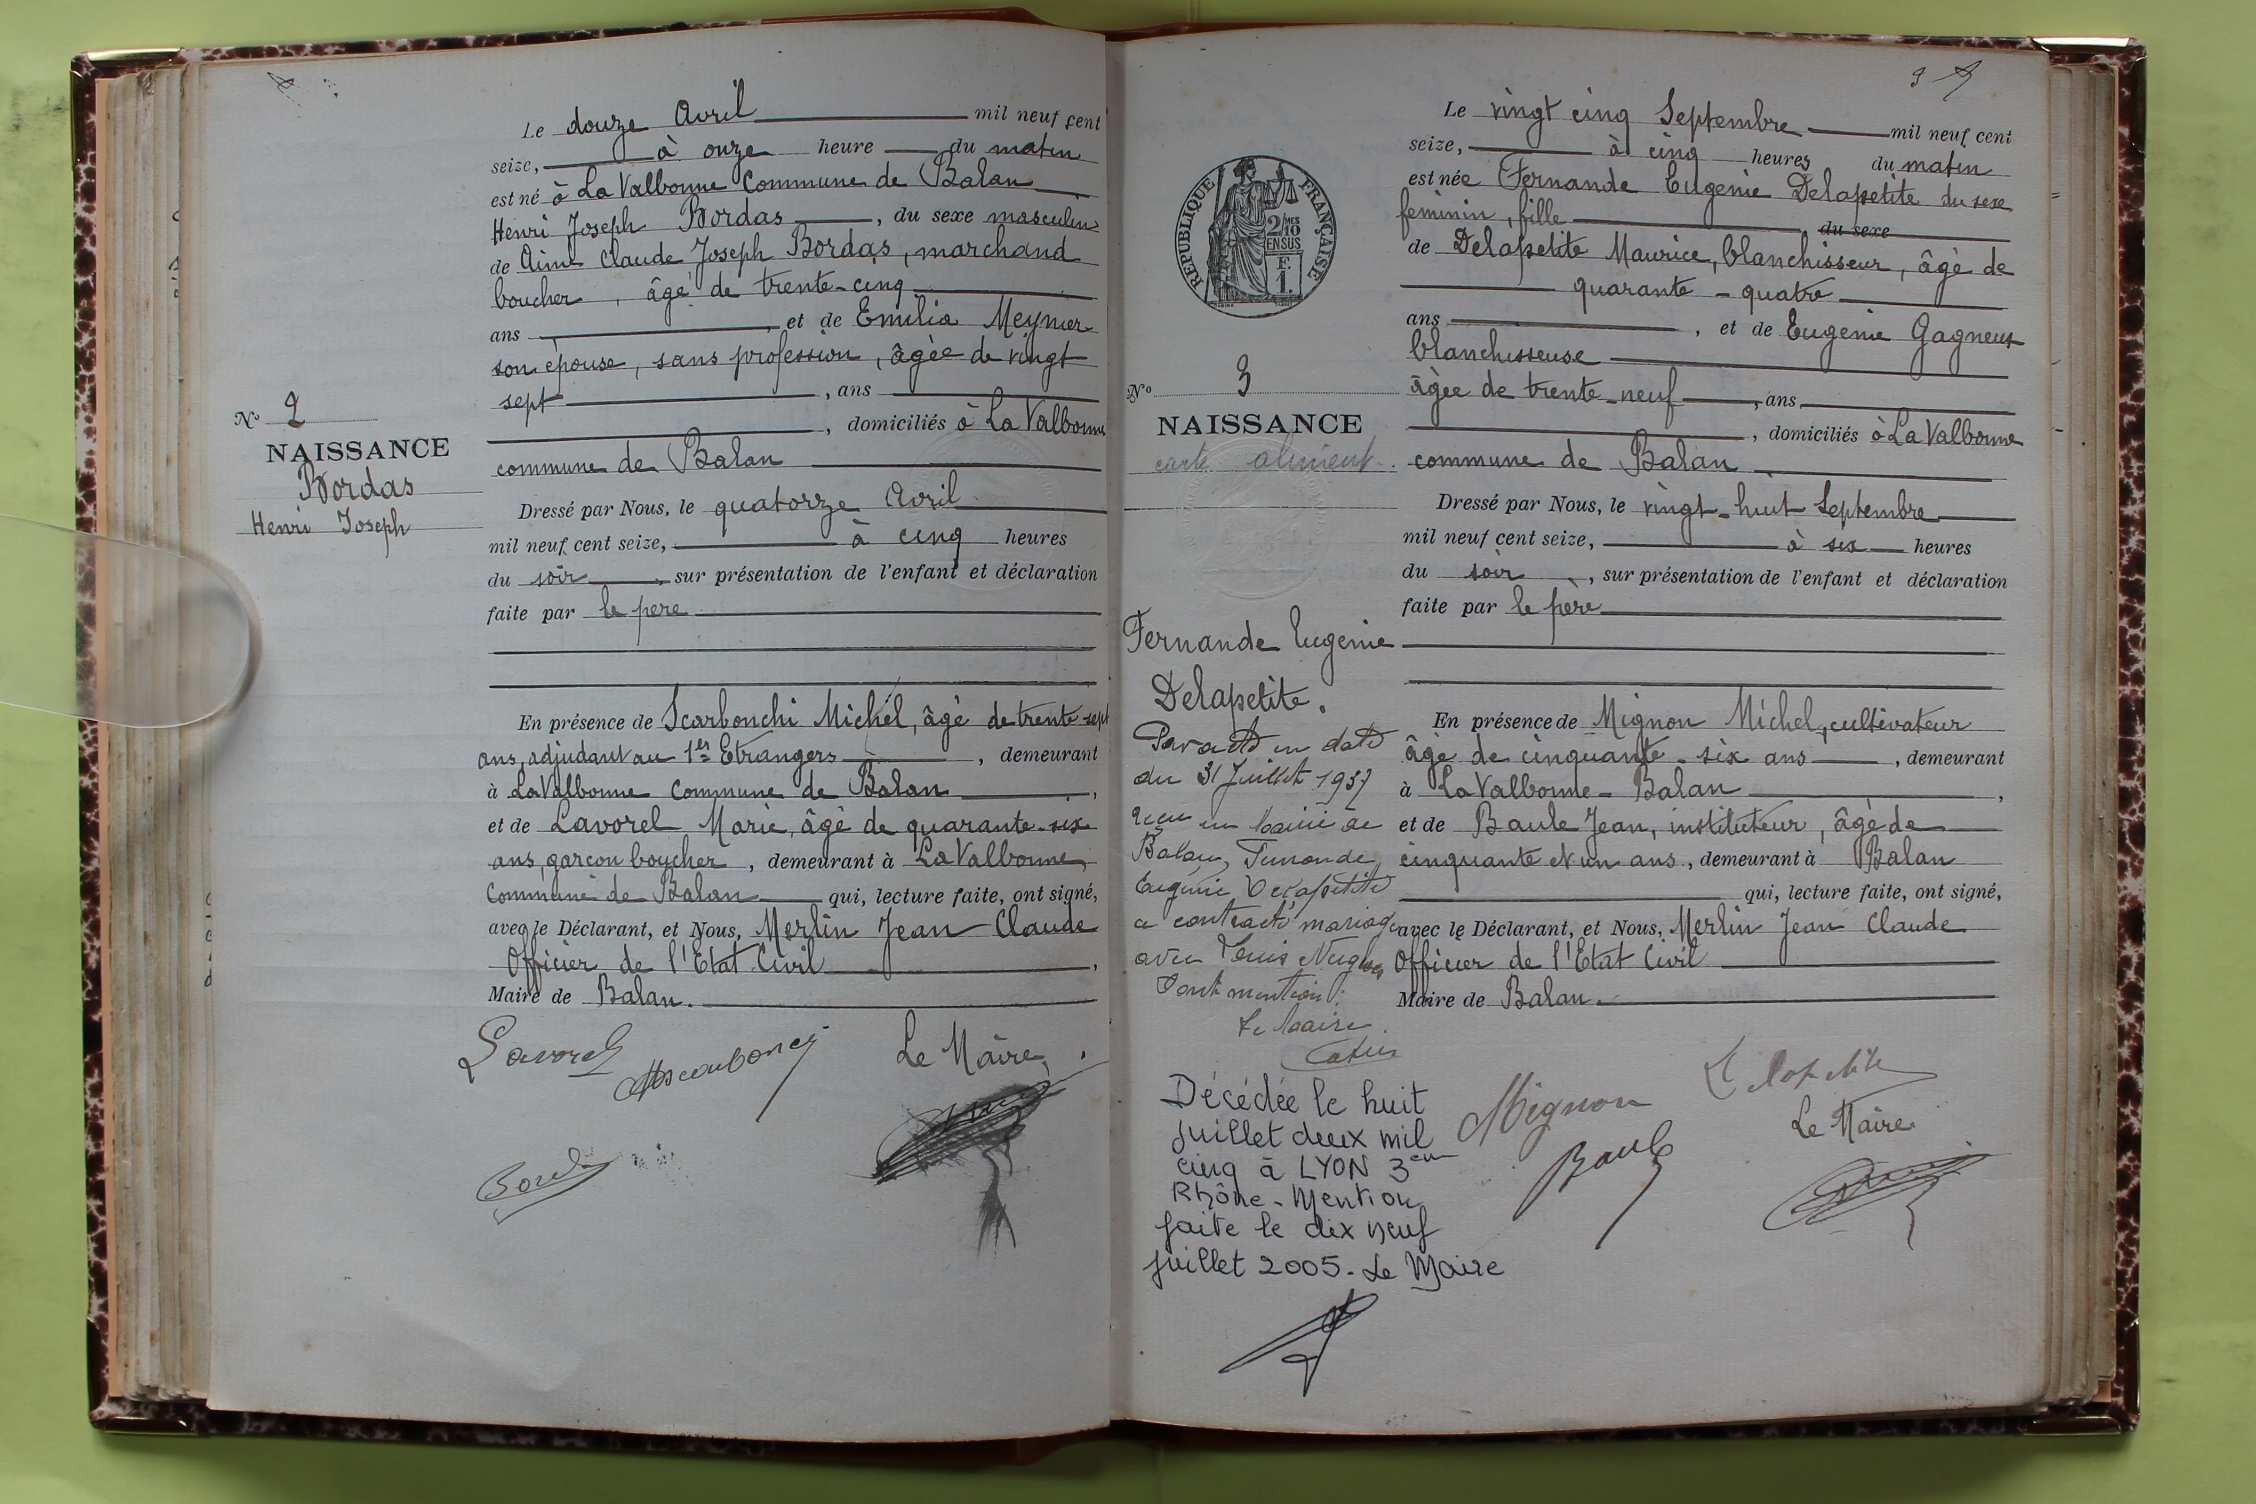 Le douze Avril mil neuf cent
seize, à onze heure du matin
est né à La Valbonne Commune de Balan
Henri Joseph Bordas, du sexe masculin
de Aimé Claude Joseph Bordas, marchand
boucher, âgé de trente-cinq
ans, et de Emilia Meynier
son épouse, sans profession, âgée de vingt
sept, ans
, domiciliés à La Valbonne
commune de Balan
Dressé par Nous, le quatorze Avril
mil neuf cent seize, à cinq heures
du soir, sur présentation de l'enfant et déclaration
faite par le père
En présence de Scarbonchi Michel, âgé de trente-sept
ans, adjudant au 1er Etrangers, demeurant
à La Valbonne Commune de Balan,
et de Lavorel Marie, âgé de quarante-six
ans, garcon boucher, demeurant à La Valbonne,
Commune de Balan qui, lecture faite, ont signé,
avec le Déclarant, et Nous, Merlin Jean Claude
Officier de l'Etat Civil,
Maire de Balan.
Lavorel
Le Maire,
Nº 2
NAISSANCE
Bordas
Henri Joseph
Le vingt cinq Septembre mil neuf cent
seize, à cinq heures du matin
est née Fernande Eugenie Delapetite du sexe
feminin, fille du sexe
de Delapetite Maurice, blanchisseur, âgé de
quarante-quatre
ans, et de Eugenie Gagneux
blanchisseuse
âgée de trente-neuf, ans
, domiciliés à La Valbonne
commune de Balan
Dressé par Nous, le vingt-huit Septembre
mil neuf cent seize, à six heures
du soir, sur présentation de l'enfant et déclaration
faite par le père
En présence de Mignon Michel, cultivateur
âgé de cinquante-six ans, demeurant
à La Valbonne-Balan,
et de Baule Jean, instituteur, âgé de
cinquante et un ans, demeurant à Balan
qui, lecture faite, ont signé,
avec le Déclarant, et Nous, Merlin Jean Claude
Officier de l'Etat Civil
Maire de Balan.
Mignon
Delapetite
Baule
Le Maire
RÉPUBLIQUE FRANÇAISE
2/10 MES
EN SUS
F.
1.
Nº 3
NAISSANCE
carte aliment.
Fernande Eugenie
Delapetite.
Par acte en date
du 31 Juillet 1937
reçu en Mairie de
Balan, Fernande
Eugénie Delapetite
a contracté mariage
avec Louis
Dont mention.
Le Maire.
Décédée le huit
juillet deux mil
cinq à LYON 3em
Rhône-Mention
faite le dix neuf
juillet 2005. Le Maire